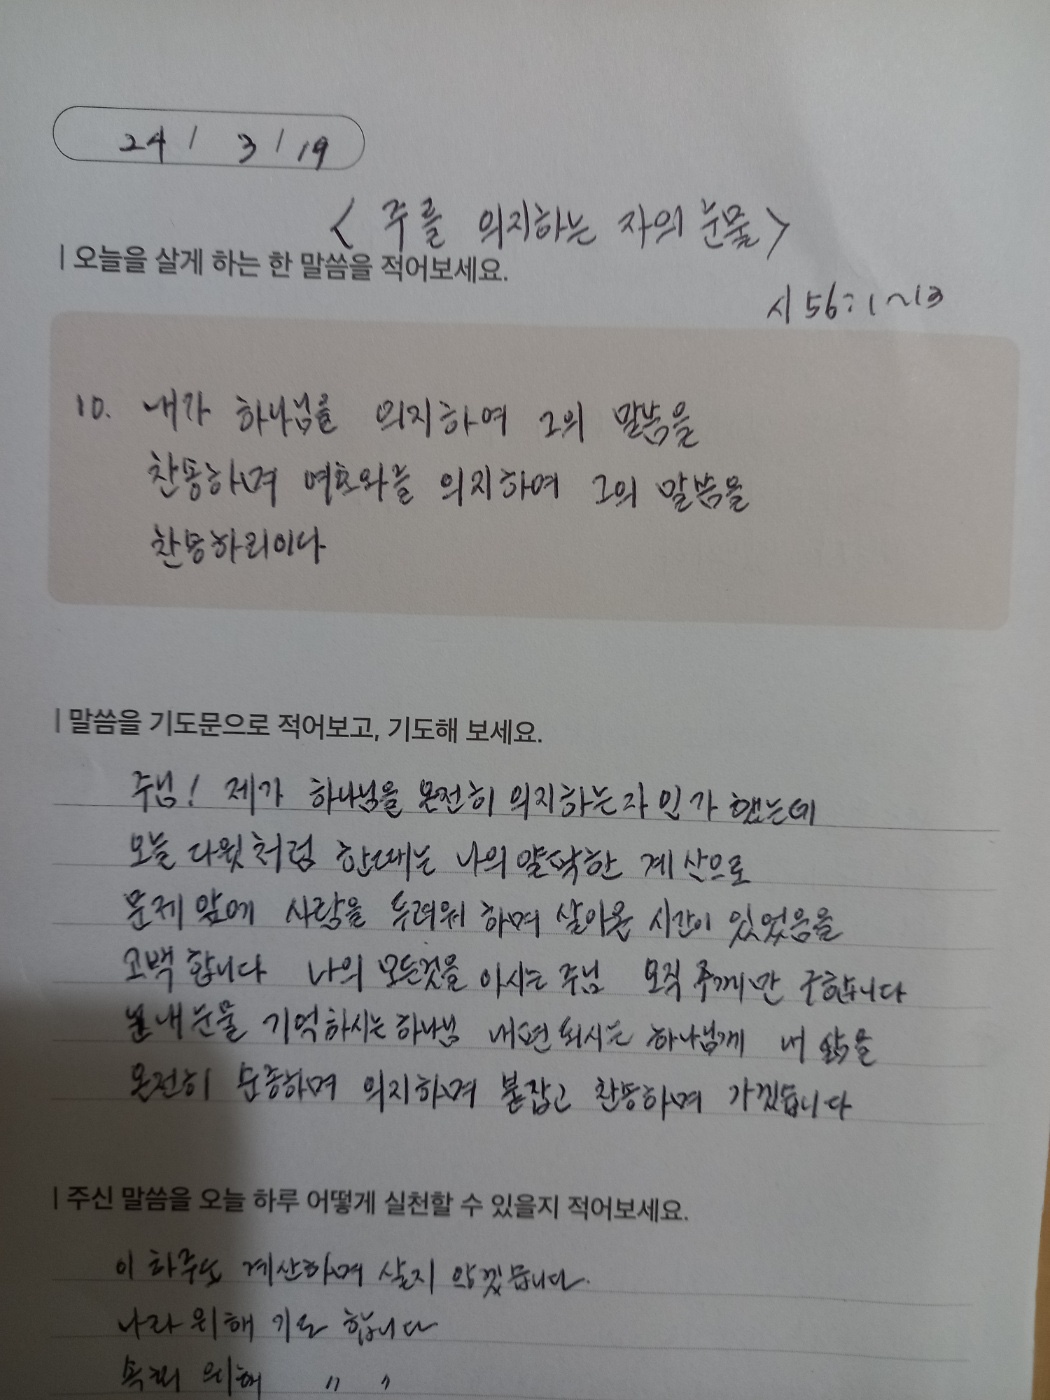 24 / 3 / 19
< 주를 의지하는 자의 눈물 >
| 오늘을 살게 하는 한 말씀을 적어보세요.
시 56:1~13
10. 내가 하나님을 의지하여 그의 말씀을
찬송하며 여호와를 의지하여 그의 말씀을
찬송하리이다
| 말씀을 기도문으로 적어보고, 기도해 보세요.
주님! 제가 하나님을 온전히 의지하는 자인가 했는데
오늘 다윗처럼 한때는 나의 얄팍한 계산으로
문제 앞에 사람을 두려워 하며 살아온 시간이 있었음을
고백 합니다 나의 모든것을 아시는 주님 오직 주께만 구합니다
내 눈물 기억하시는 하나님 내편 되시는 하나님께 내 삶을
온전히 순종하며 의지하며 붙잡고 찬송하며 가겠습니다
| 주신 말씀을 오늘 하루 어떻게 실천할 수 있을지 적어보세요.
이 하루도 계산하며 살지 않겠습니다.
나라 위해 기도 합니다
위해 〃 〃